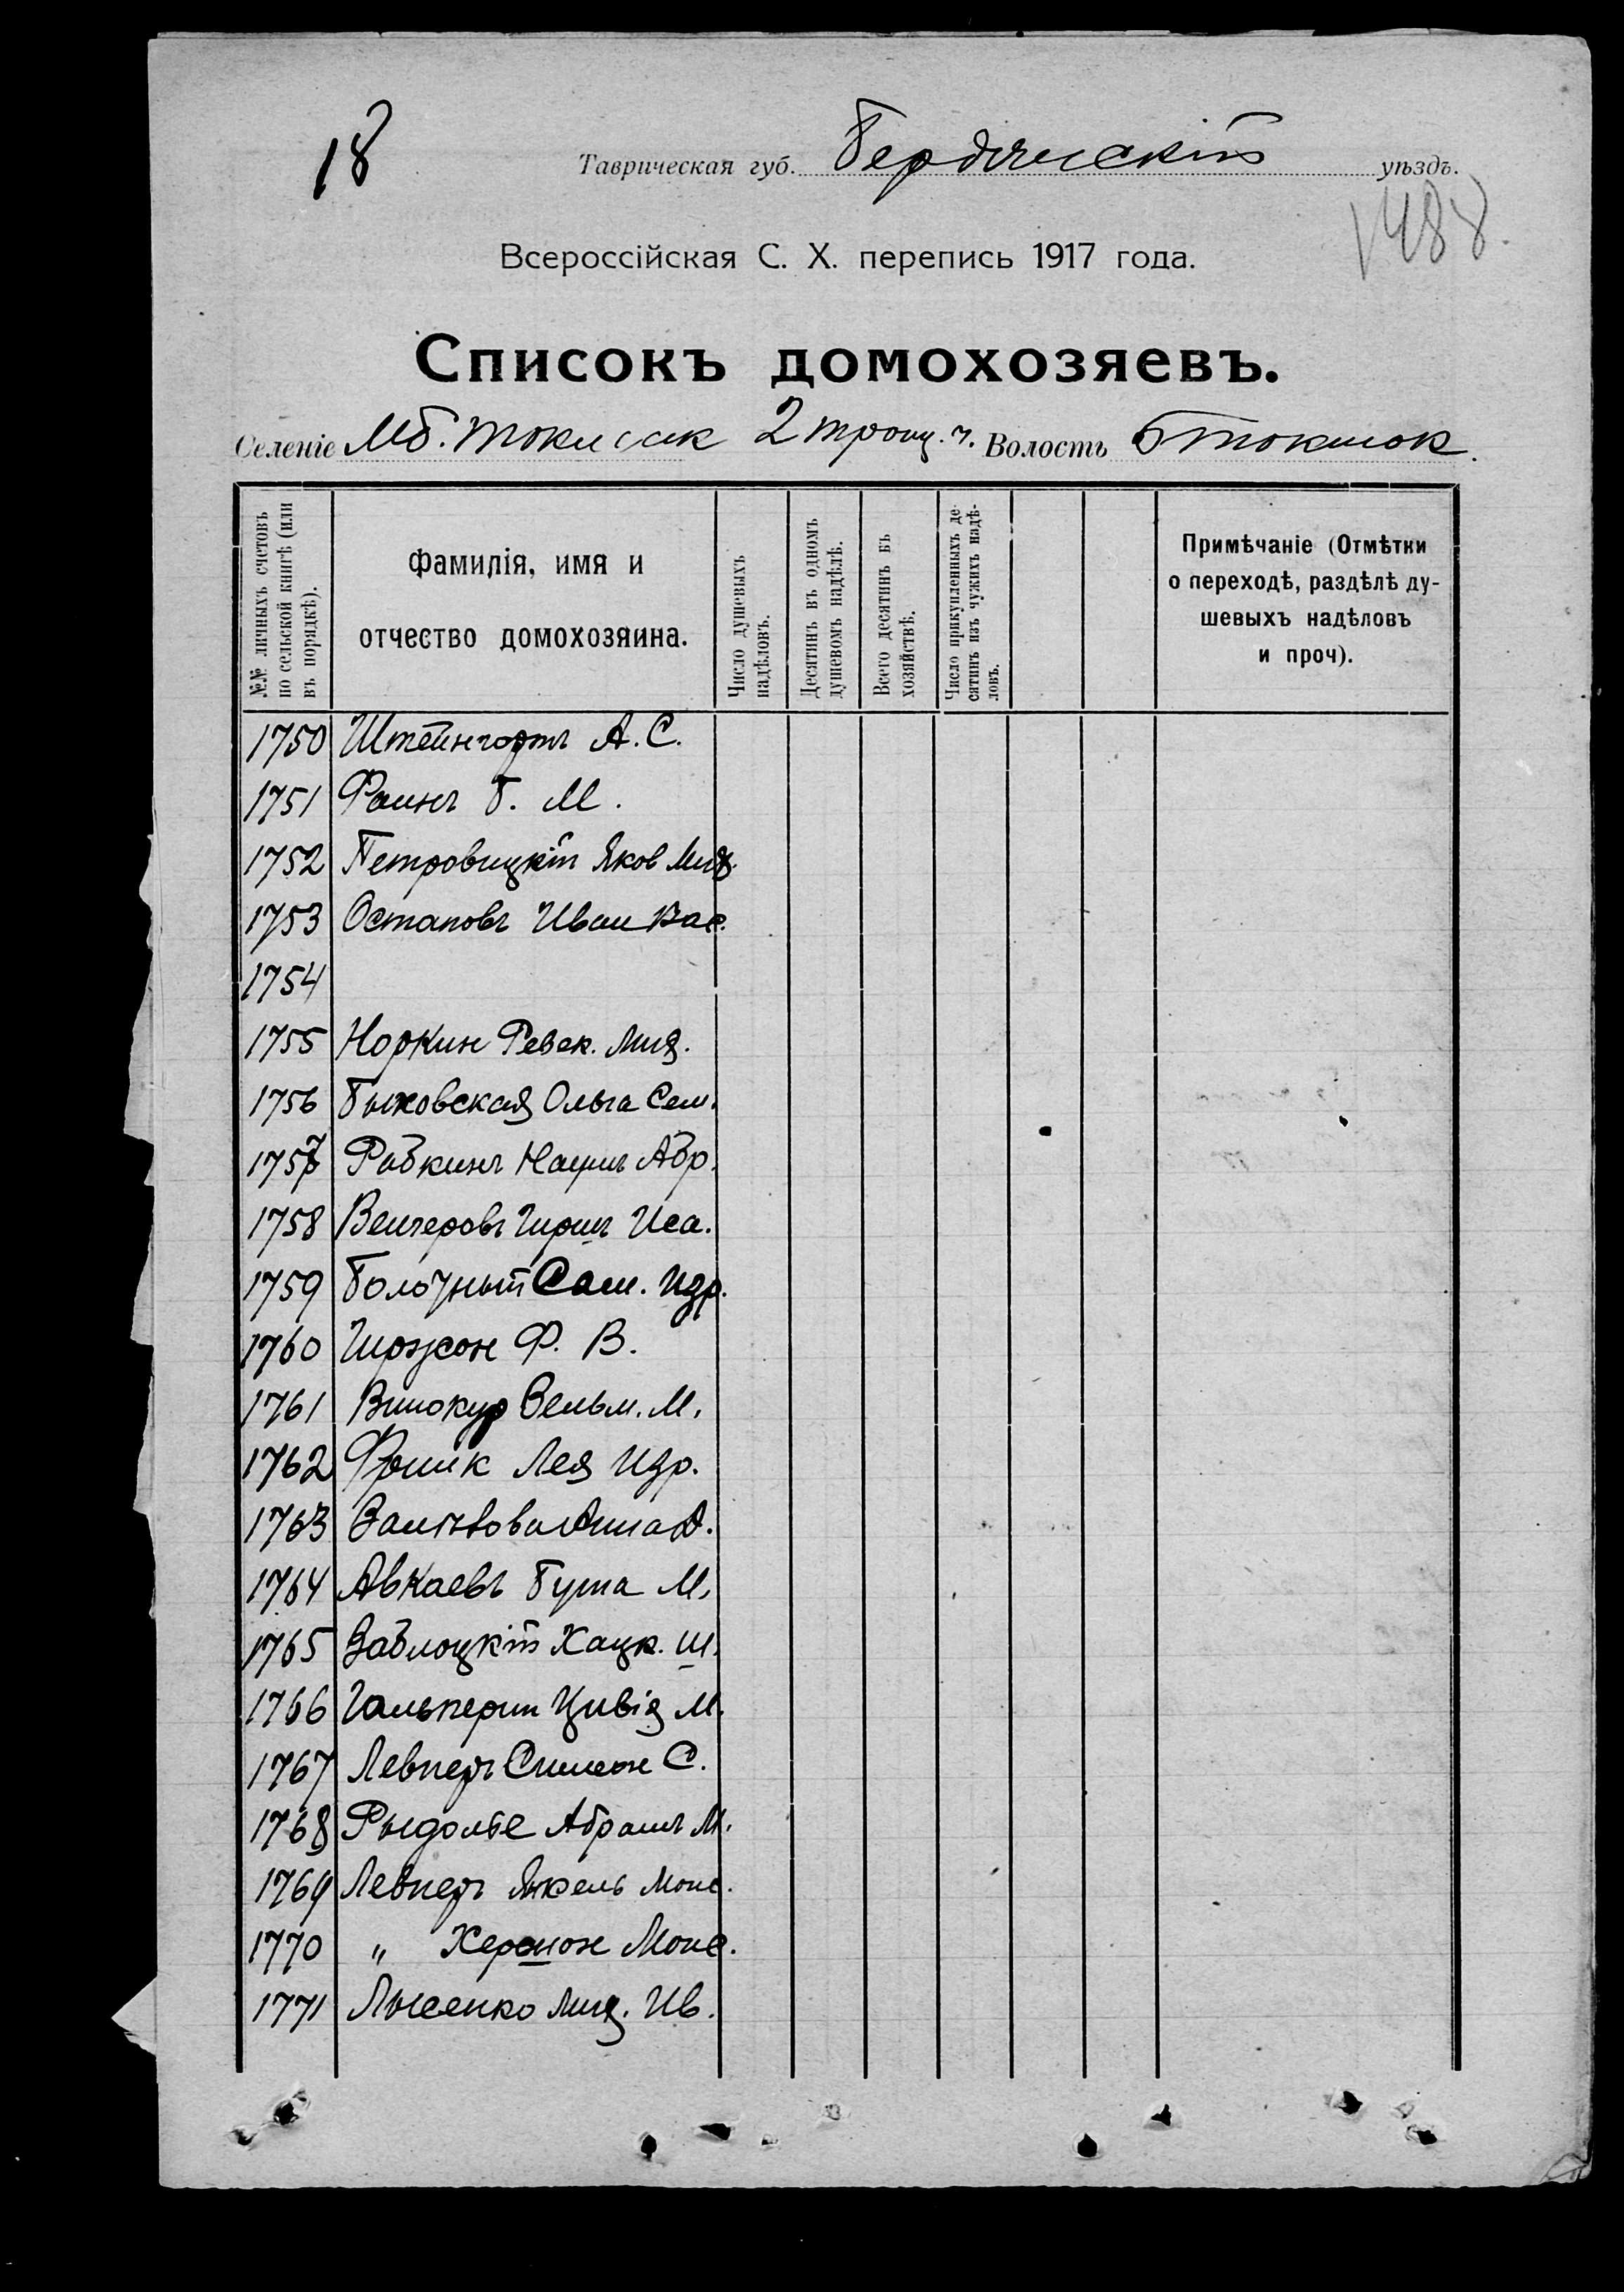 18
Таврическая губ. Бердянскій уѣздъ.
1488.
Всероссійская С. Х. перепись 1917 года.
Списокъ домохозяевъ.
Селеніе Мб. Токмак 2 троиц. ч. Волость Б Токмок.
№№ личныхъ счетовъ по сельской книгѣ (или въ порядкѣ).
Фамилія, имя и отчество домохозяина.
Число душевыхъ надѣловъ.
Десятинъ въ одномъ душевомъ надѣлѣ.
Всего десятинъ въ хозяйствѣ.
Число прикупленныхъ десятинъ изъ чужихъ надѣловъ.
Примѣчаніе (Отмѣтки о переходѣ, раздѣлѣ душевыхъ надѣловъ и проч).
1750 Штейнгартъ А. С.
1751 Фаинъ Б. М.
1752 Петровицкій Яков Мих.
1753 Остаповъ Иван Вас.
1754
1755 Норкин Ревек. Мих.
1756 Быховская Ольга Сем.
1757 Рабкинъ Наумъ Абр.
1758 Венгеровъ Гиршъ Иса.
1759 Болочный Сам. Изр.
1760 Гиржон Ф. В.
1761 Винокур Вельм. М.
1762 Фраик Лея Изр.
1763 Анна
1764 Авкаевъ Бума М.
1765 Заблоцкій Хацк. Ш.
1766 Гальперин Цивія М.
1767 Левнеръ Симеон С.
1768 Абрамъ М.
1769 Левнеръ Янкель Моис.
1770 „ Хершон Моис.
1771 Лысенко Мих. Ив.